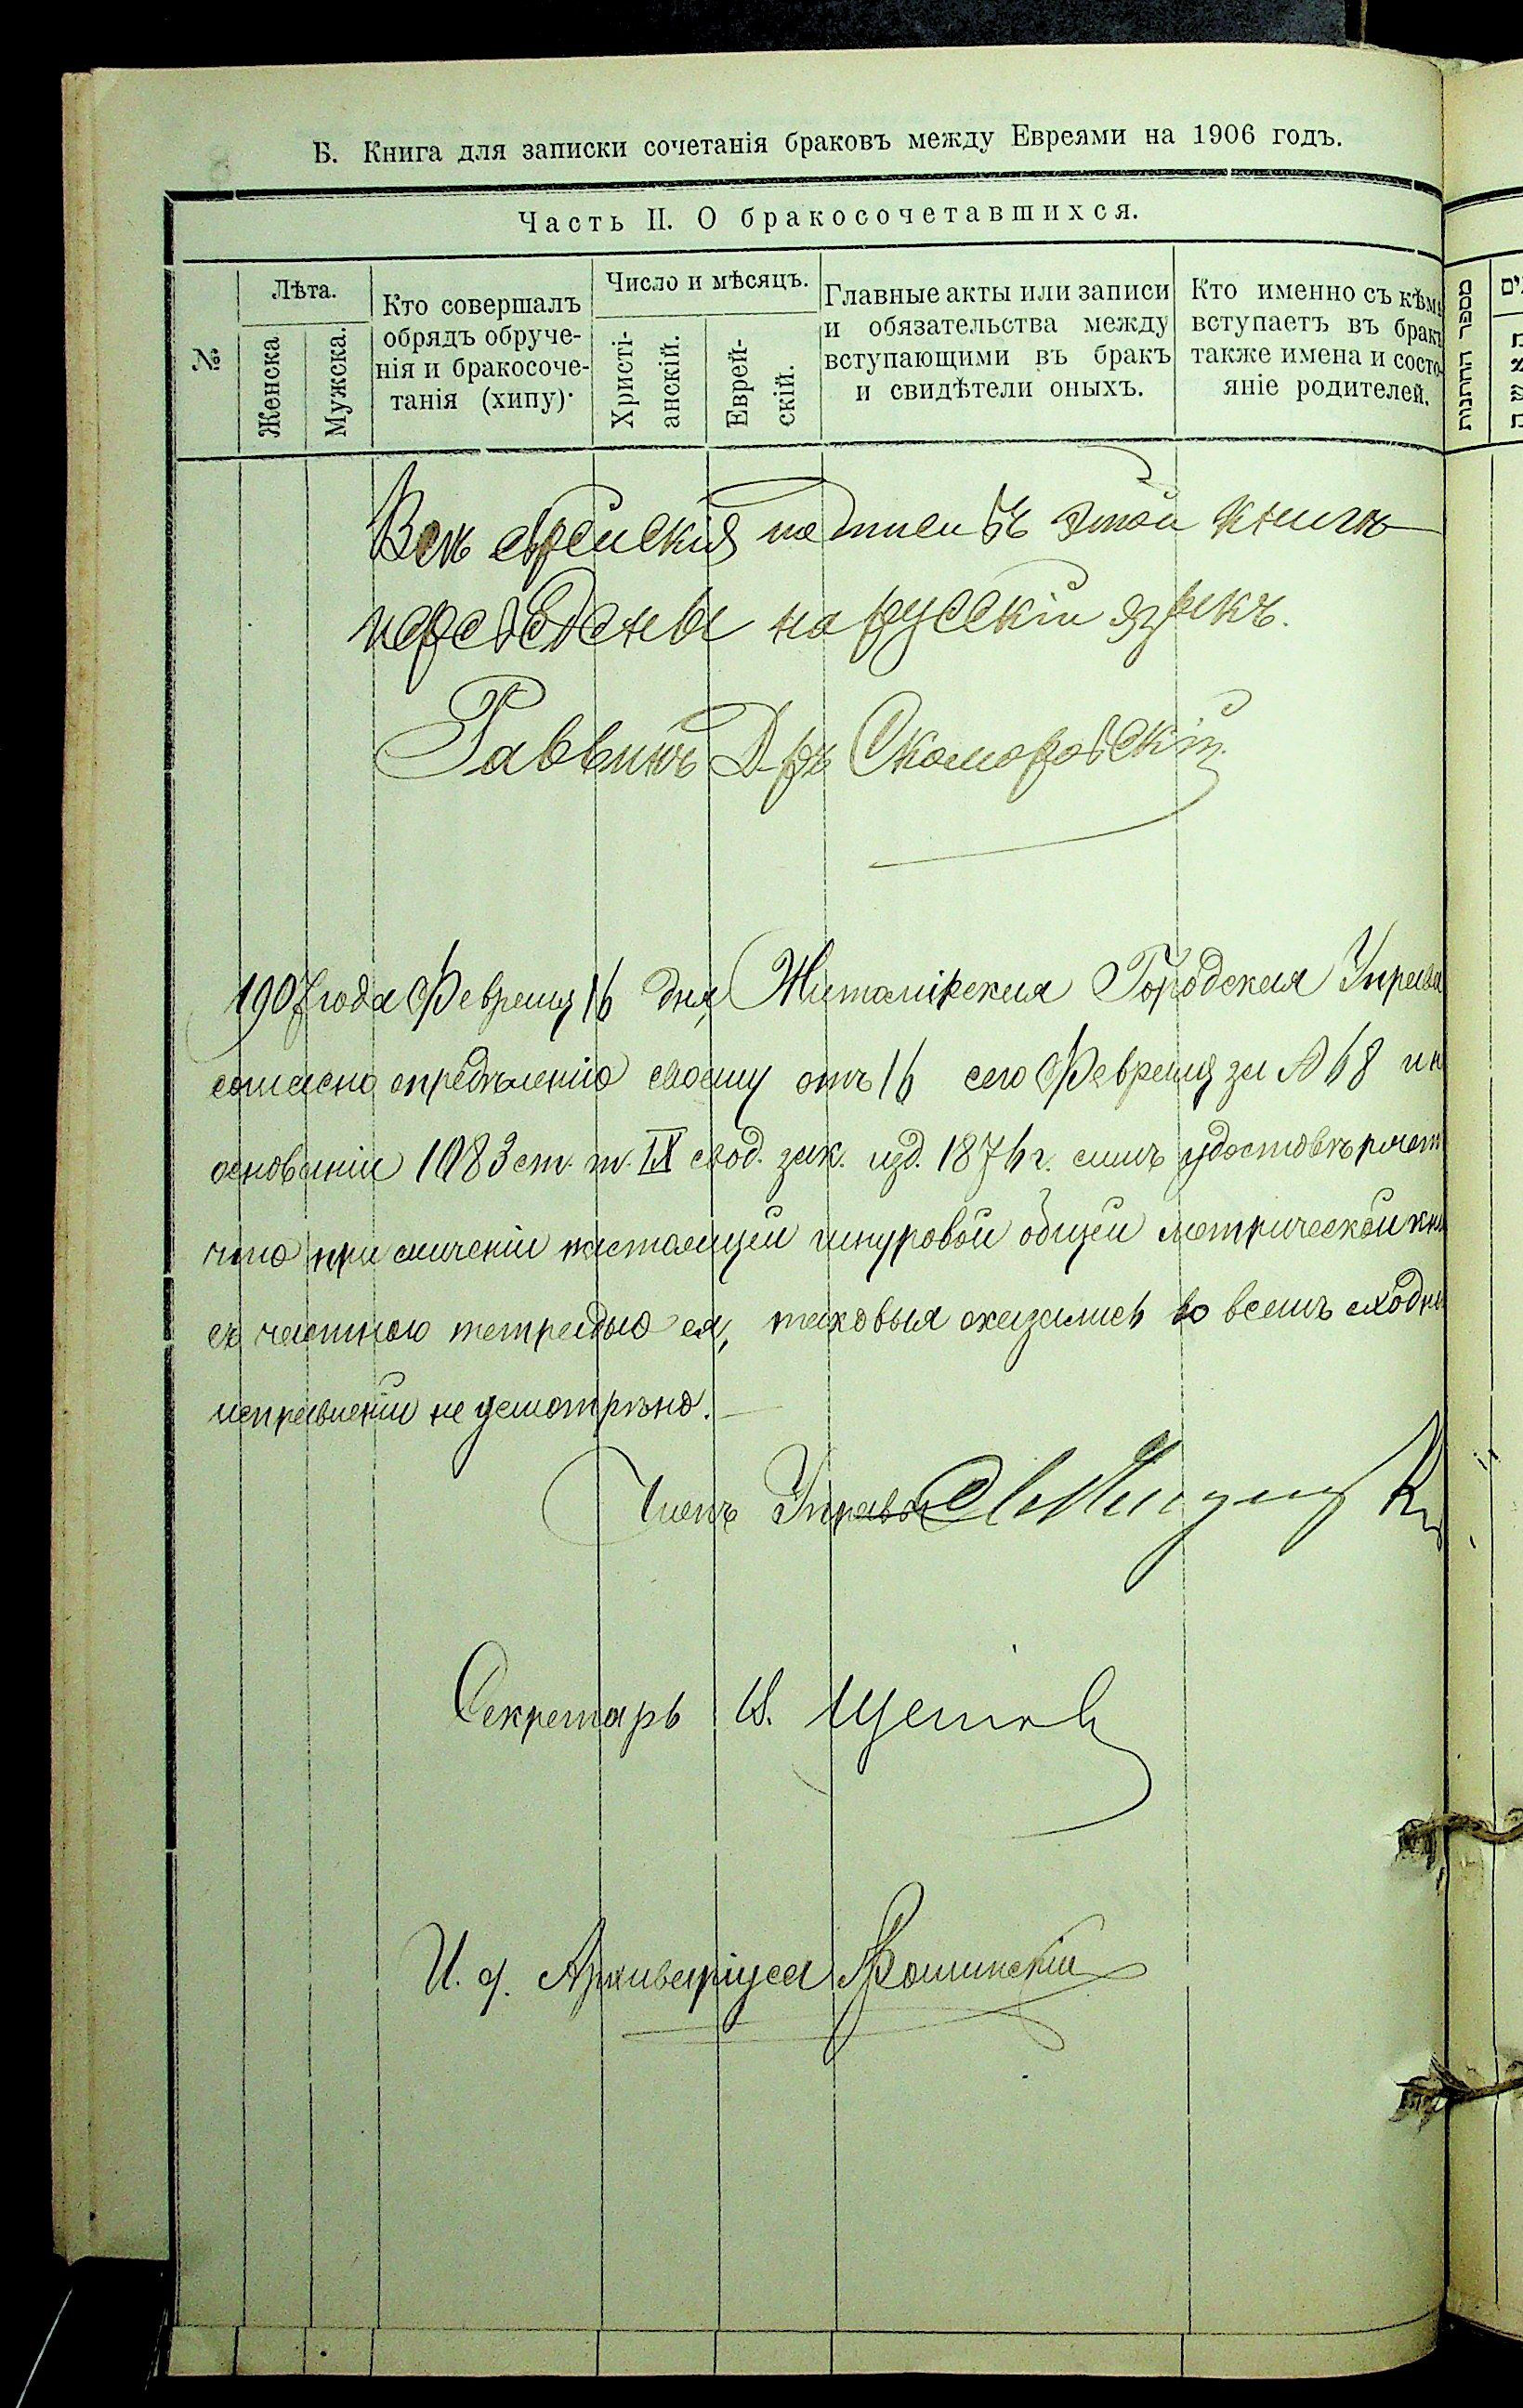 Б. Книга для записки сочетанія браковъ между Евреями на 1906 годъ.
Часть II. О бракосочетавшихся.
№
Лѣта.
Женска
Мужска.
Кто совершалъ
обрядъ обруче-
нія и бракосоче-
танія (хипу).
Число и мѣсяцъ.
Христі-
анскій.
Еврей-
скій.
Главные акты или записи
и обязательства между
вступающими въ бракъ
и свидѣтели оныхъ.
Кто именно съ кѣмъ
вступаетъ въ бракъ
также имена и состо-
яніе родителей.
מספר החתונות
Всѣ еврейскія подписи въ этой книгѣ
переведены на русскій языкъ.
Раввинъ Д-ръ Скоморовскій.
1907 года Февраля 16 дня, Житомірская Городская Управа
согласно опредѣленію своему отъ 16 сего Февраля за № 68 и н
основаніи 1083 ст. т. IX свод. зак. изд. 1876 г. симъ удостовѣряет
что при сличеніи настоящей шнуровой общей метрической кни
съ частною тетрадью ея, таковыя оказались во всемъ сходны
исправленій не усмотрѣно.
Членъ Управы
Секретарь
И. д. Архиваріуса